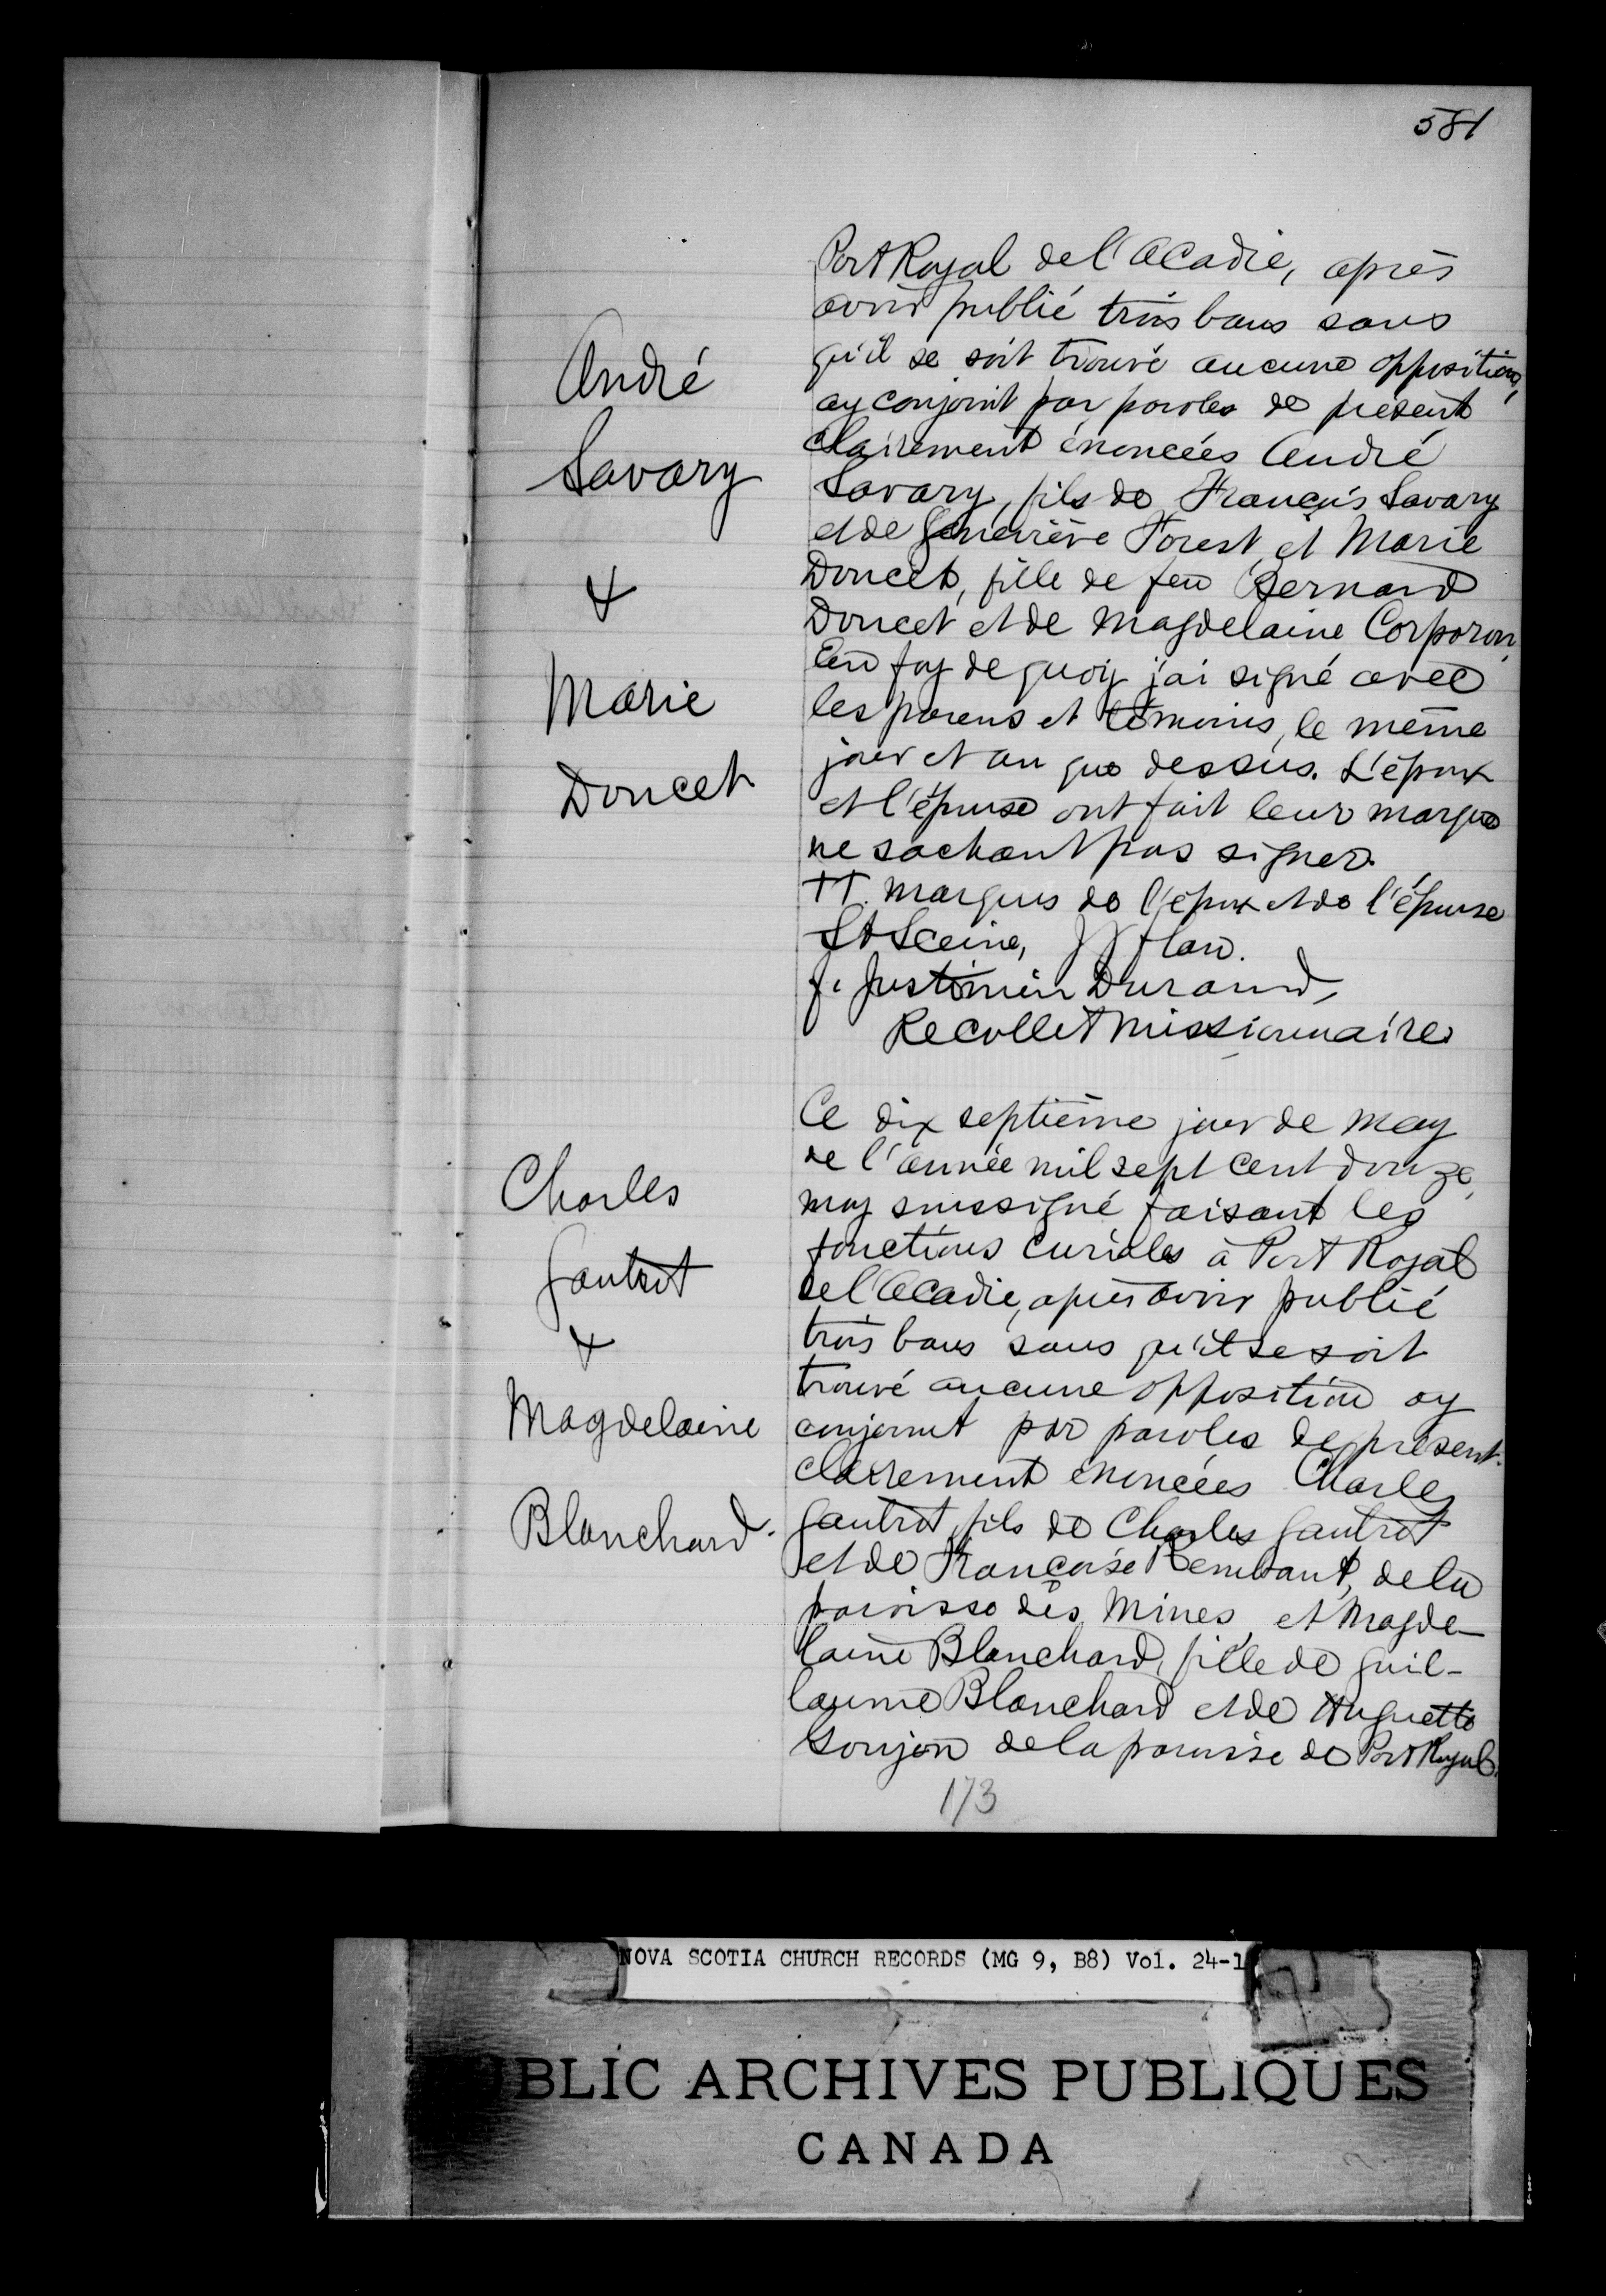 581
Port Royal de l'Acadie, après
avoir publié trois bans sans
qu'il se soit trouvé aucune opposition,
ay conjoint par paroles de présent
clairement énoncées André
Savary, fils de François Savary
et de Geneviève Forest, et Marie
Doucet, fille de feu Bernard
Doucet et de Magdelaine Corporon,
En foy de quoy j'ai signé avec
les parens et témoins, le même
jour et an que dessus. L'époux
et l'épouse ont fait leur marque
ne sachant pas signer.
++. Marques de l'époux et de l'épouse
St Sceine,
f. Justinien Durand,
Recollet Missionnaire
André
Savary
&
Marie
Doucet
Ce dix septième jour de may
de l'année mil sept cent douze,
moy soussigné faisant les
fonctions curiales à Port Royal
de l'Acadie, après avoir publié
trois bans sans qu'il se soit
trouvé aucune opposition ay
conjoint par paroles de présent
clairement énoncées Charles
Gautrot, fils de Charles Gautrot
et de Françoise, de la
paroisse des Mines, et Magde-
laine Blanchard, fille de Guil-
laume Blanchard et de Huguette
Goujon de la paroisse de Port Royal.
Charles
Gautrot
&
Magdelaine
Blanchard.
173
NOVA SCOTIA CHURCH RECORDS (MG 9, B8) Vol. 24-1
BLIC ARCHIVES PUBLIQUES
CANADA